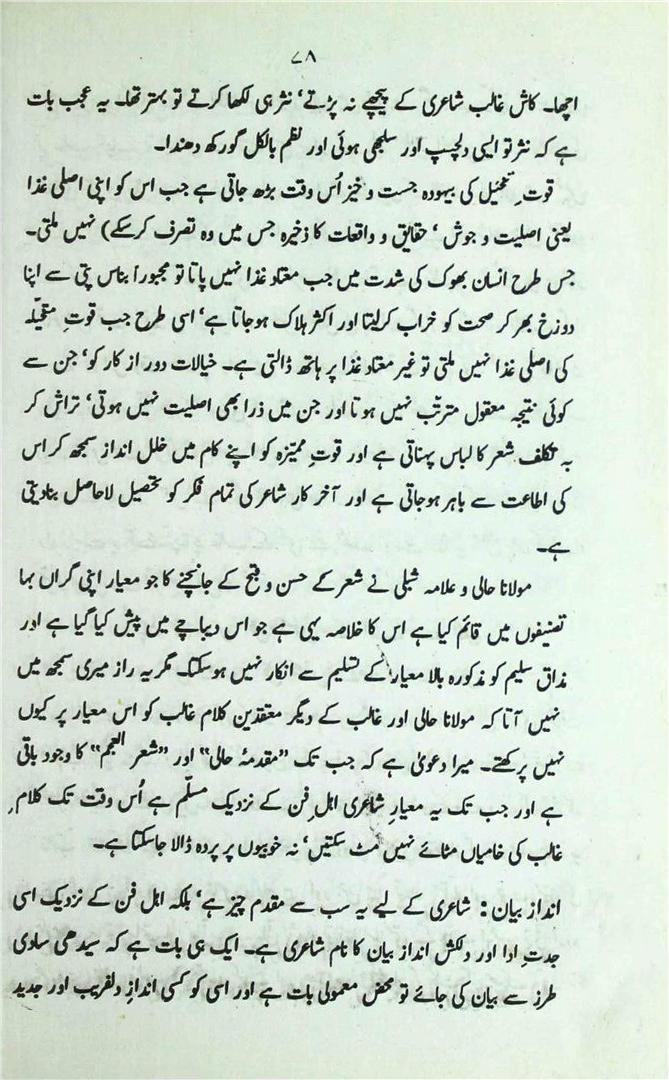 ۷۸
اچھا۔ کاش غالب شاعری کے پیچھے نہ پڑتے، نثر ہی لکھا کرتے تو بہتر تھا۔ یہ عجب بات
ہے کہ نثر تو ایسی دلچسپ اور سلجھی ہوئی اور نظم بالکل گورکھ دھندا۔
قوتِ تخئیل کی بیہودہ جست و خیز اُس وقت بڑھ جاتی ہے جب اس کو اپنی اصلی غذا
یعنی اصلیت و جوش ، حقایق و واقعات کا ذخیرہ جس میں وہ تصرف کرسکے) نہیں ملتی۔
جس طرح انسان بھوک کی شدت میں جب معتاد غذا نہیں پاتا تو مجبوراً بناس پتی سے اپنا
دوزخ بھر کر صحت کو خراب کرلیتا اور اکثر ہلاک ہوجاتا ہے، اسی طرح جب قوتِ متخیّلہ
کی اصلی غذا نہیں ملتی تو غیر معتاد غذا پر ہاتھ ڈالتی ہے۔ خیالات دور از کار کو، جن سے
کوئی نتیجہ معقول مترتّب نہیں ہوتا اور جن میں ذرا بھی اصلیت نہیں ہوتی، تراش کر
بہ تکلف شعر کا لباس پہناتی ہے اور قوتِ ممیّزہ کو اپنے کام میں خلل انداز سمجھ کر اس
کی اطاعت سے باہر ہوجاتی ہے اور آخر کار شاعر کی تمام فکر کو تحصیل لاحاصل بنادیتی
ہے۔
مولانا حالی و علامہ شبلی نے شعر کے حسن و قبح کے جانچنے کا جو معیار اپنی گراں بہا
تصنیفوں میں قائم کیا ہے اس کا خلاصہ یہی ہے جو اس دیباچے میں پیش کیا گیا ہے اور
مذاق سلیم کو مذکورہ بالا معیار کے تسلیم سے انکار نہیں ہوسکتا۔ مگر یہ راز میری سمجھ میں
نہیں آتا کہ مولانا حالی اور غالب کے دیگر معتقدین کلام غالب کو اس معیار پر کیوں
نہیں پرکھتے۔ میرا دعویٰ ہے کہ جب تک ”مقدمۂ حالی“ اور ”شعر العجم“ کا وجود باقی
ہے اور جب تک یہ معیارِ شاعری اہلِ فن کے نزدیک مسلّم ہے اُس وقت تک کلامِ
غالب کی خامیاں مٹائے نہیں مٹ سکتیں، نہ خوبیوں پر پردہ ڈالا جاسکتا ہے۔
انداز بیان : شاعری کے لیے یہ سب سے مقدم چیز ہے، بلکہ اہل فن کے نزدیک اسی
جدتِ ادا اور دلکش انداز بیان کا نام شاعری ہے۔ ایک ہی بات ہے کہ سیدھی سادی
طرز سے بیان کی جائے تو محض معمولی بات ہے اور اسی کو کسی اندازِ دلفریب اور جدید